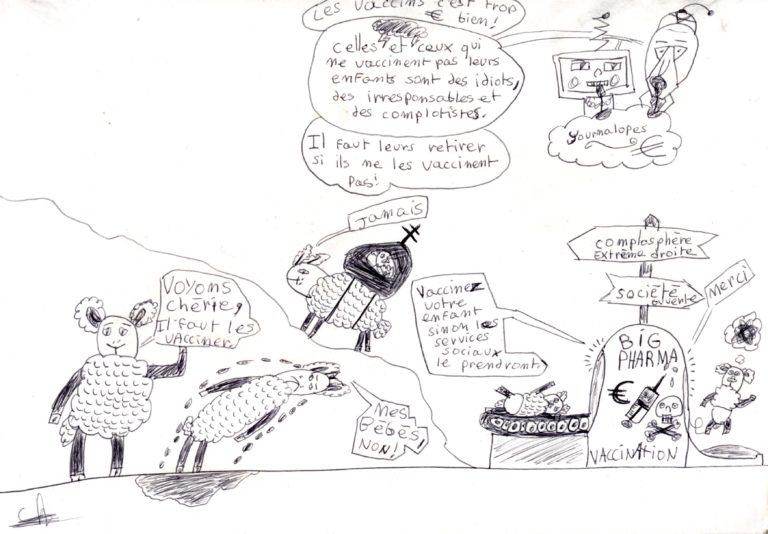 Les vaccins c'est trop
€ bien!
Celles et ceux qui
ne vaccinent pas leurs
enfants sont des idiots,
des irresponsables et
des complotistes.
Il faut leurs retirer
si ils ne les vaccinent
pas!
Journalopes
€
Jamais
complosphère
Extrême droite
société
ouverte
Merci
Voyons
chérie,
Il faut les
vacciner
Vaccinez
votre
enfant
sinon les
services
sociaux
le prendront.
BIG
PHARMA
€
VACCINATION
Mes
Bébés,
NON!